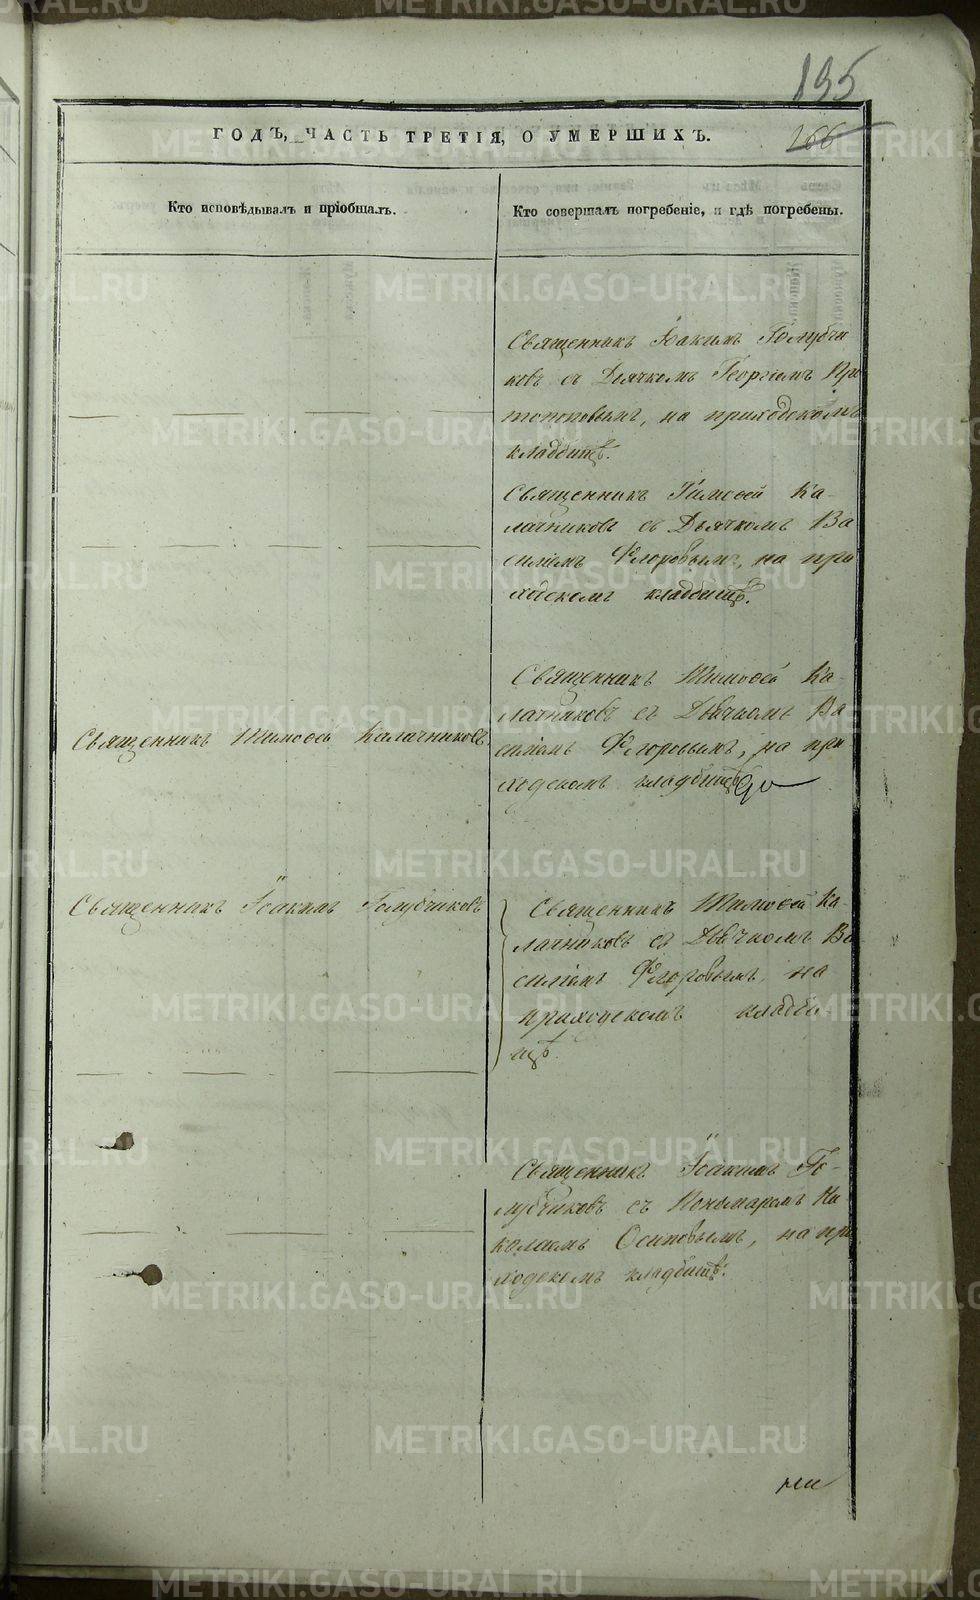 195
ГОДЪ, ЧАСТЬ ТРЕТІЯ, О УМЕРШИХЪ.
266
Кто исповѣдывалъ и пріобщалъ.
Кто совершалъ погребеніе, и гдѣ погребены.
Священникъ Іоакимъ Голубчи
ковъ съ Дьячкомъ Георгіемъ Про
топоповымъ, на приходскомъ
кладбищѣ.
Священникъ Тимоѳей Ка-
лачниковъ съ Дьячкомъ Ва
силіемъ Флоровымъ, на при
ходскомъ кладбищѣ.
Священникъ Тимоѳей Калачниковъ
Священникъ Тимоѳей Ка-
лачниковъ съ Дьячкомъ Ва
силіемъ Флоровымъ, на при
ходскомъ кладбищѣ
Священникъ Іоакимъ Голубчиковъ
Священникъ Тимоѳей Ка-
лачниковъ съ Дьячкомъ Ва
силіемъ Флоровымъ на
приходскомъ кладби-
щѣ.
Священникъ Іоакимъ Го-
лубчиковъ съ Пономаремъ Ни
колаемъ Осиповымъ, на при
ходскомъ кладбищѣ.
METRIKI.GASO-URAL.RU